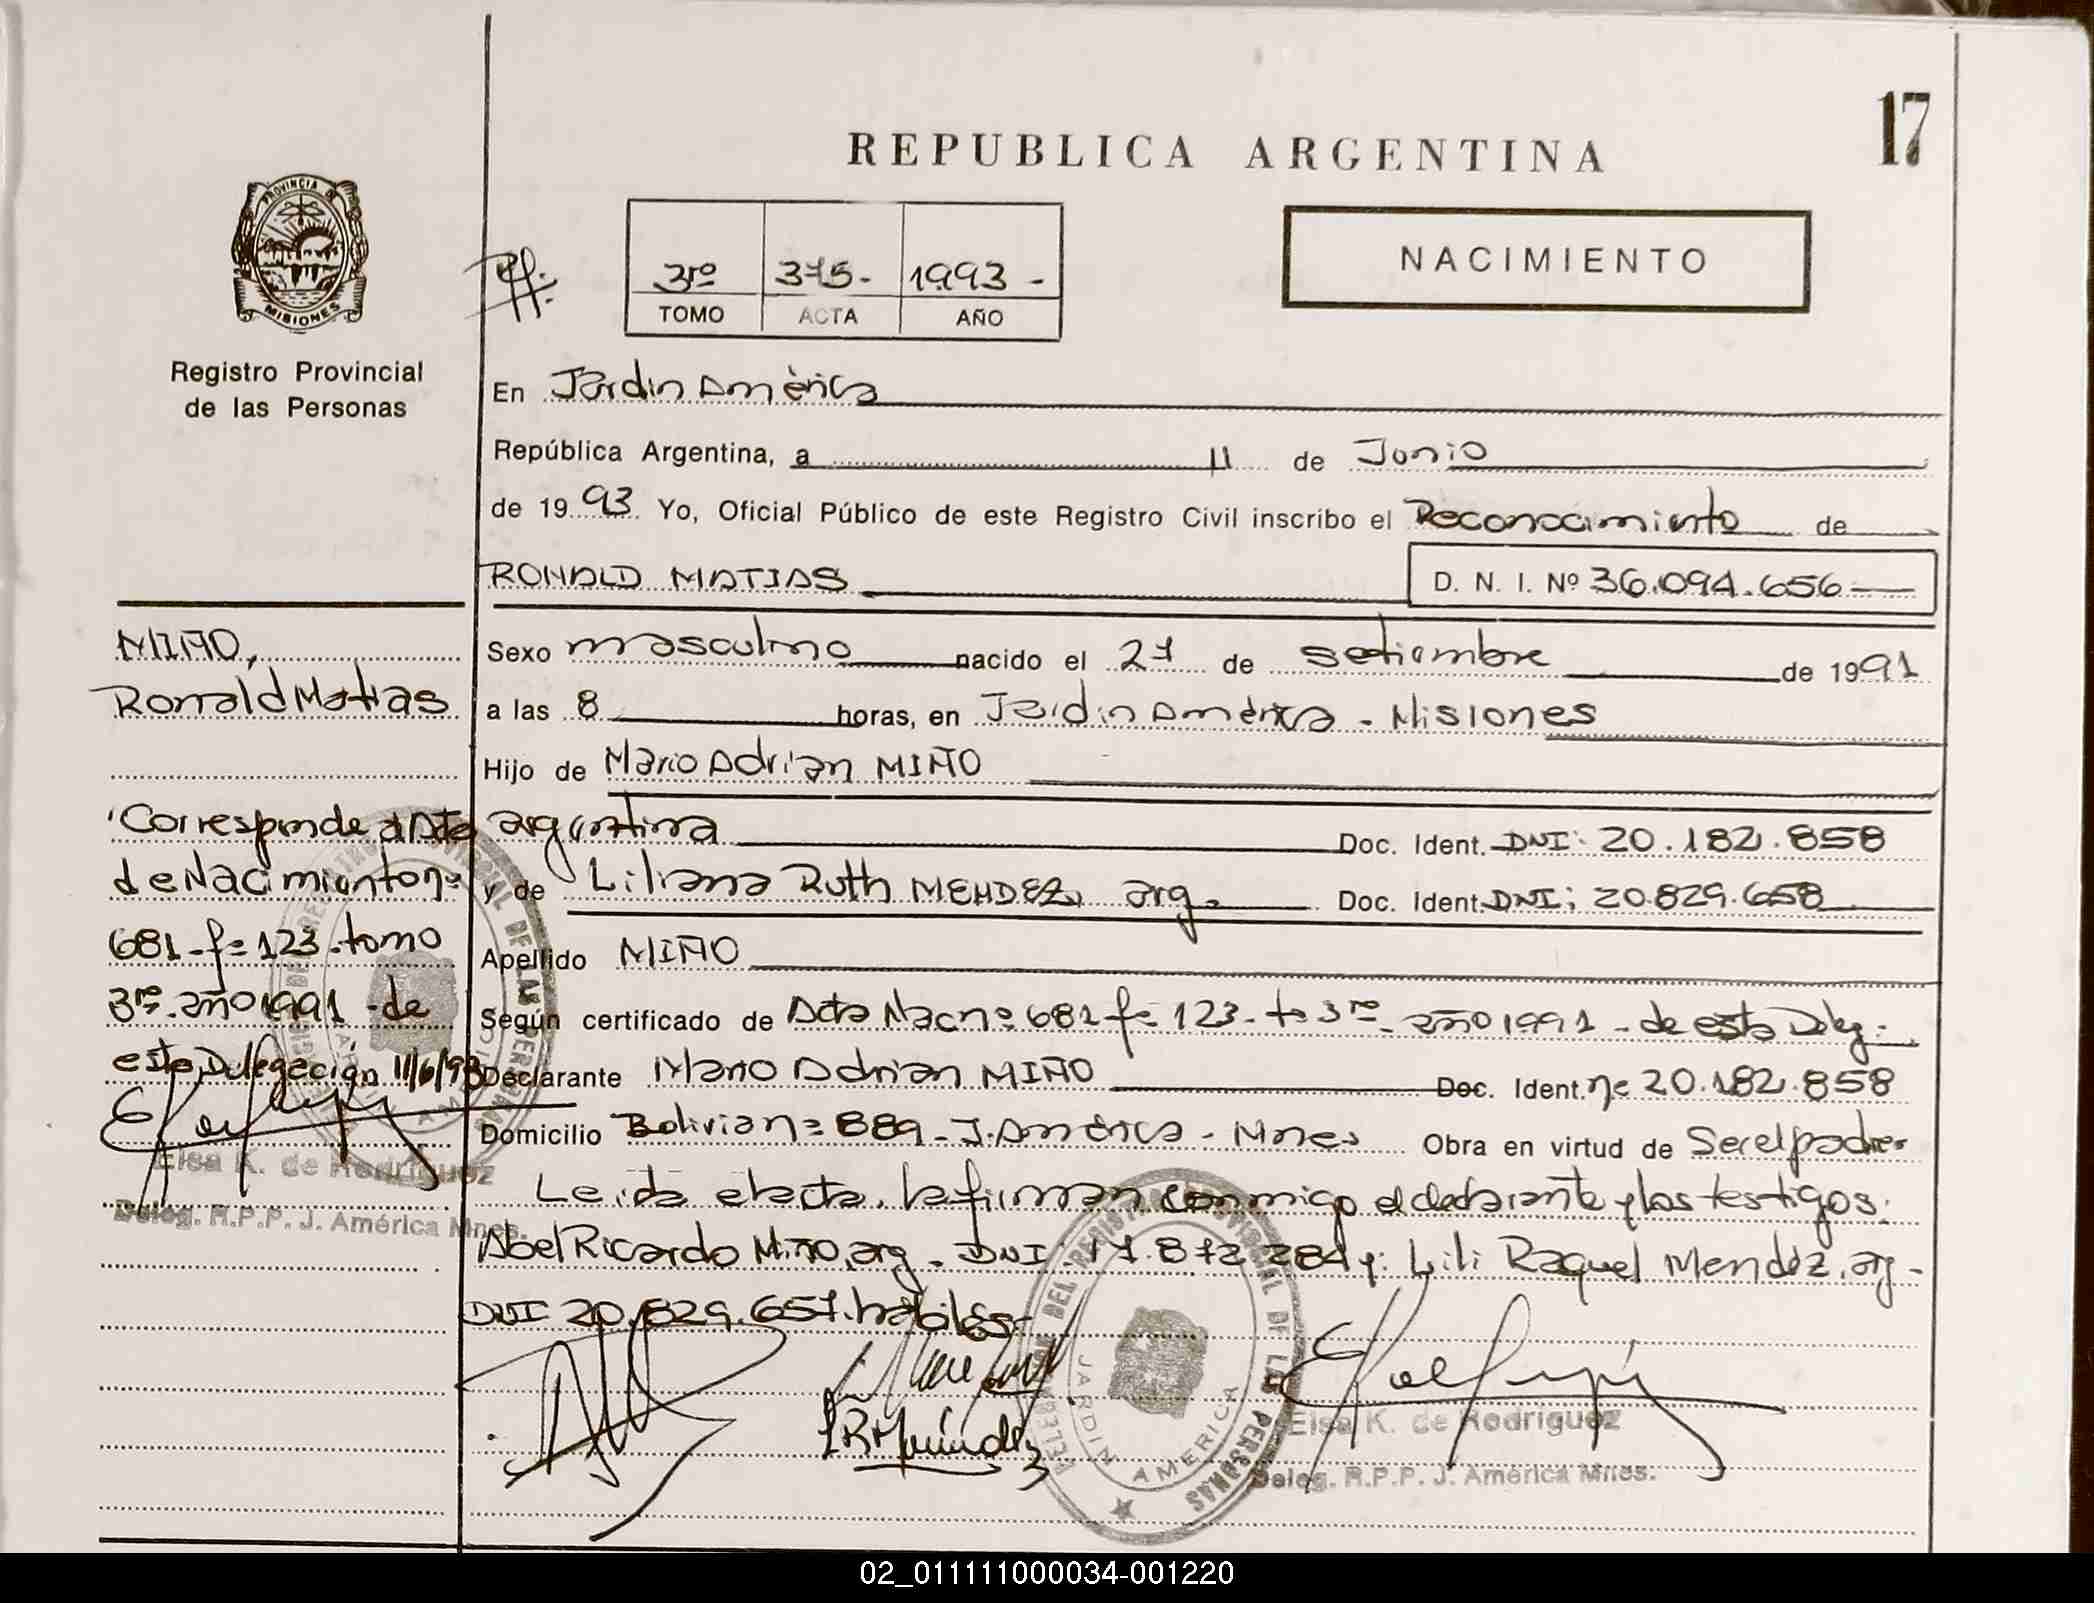 17
REPUBLICA ARGENTINA
PROVINCIA DE
MISIONES
Registro Provincial
de las Personas
NACIMIENTO
3ro 375- 1993-
TOMO ACTA AÑO
En Jardin América
República Argentina, a 11 de Junio
de 1993. Yo, Oficial Público de este Registro Civil inscribo el Reconocimiento de
RONALD MATIAS D. N. I. Nº 36.094.656
Sexo masculino nacido el 27 de setiembre de 1991
a las 8 horas, en Jardin América - Misiones
Hijo de Mario Adrian MIÑO
argentina Doc. Ident. DNI: 20.182.858
y de Liliana Ruth MENDEZ, arg. Doc. Ident. DNI: 20.829.658
Apellido MIÑO
Según certificado de Acta Nacnº 681 fº 123 - tº 3ro - año 1991 - de esta Deleg.
Declarante Mario Adrian MIÑO Doc. Ident. nº 20.182.858
Domicilio Bolivia nº 889 - J. América - Mnes Obra en virtud de Ser el padre
Leida el acta, la firman conmigo el declarante y los testigos:
Abel Ricardo Miño, arg. DNI: 17.872.284 y: Lili Raquel Mendez, arg -
DNI 20.829.657. hábiles
MIÑO,
Ronald Matias
Corresponde al Acta
de Nacimiento nº
681 - fº 123 - tomo
3ro - año 1991 - de
esta Delegación 11/6/93
Elsa K. de Rodriguez
Deleg. R.P.P. J. América Mnes.
LRMendez
JARDIN AMERICA
Elsa K. de Rodriguez
Deleg. R.P.P. J. América Mnes.
02_011111000034-001220